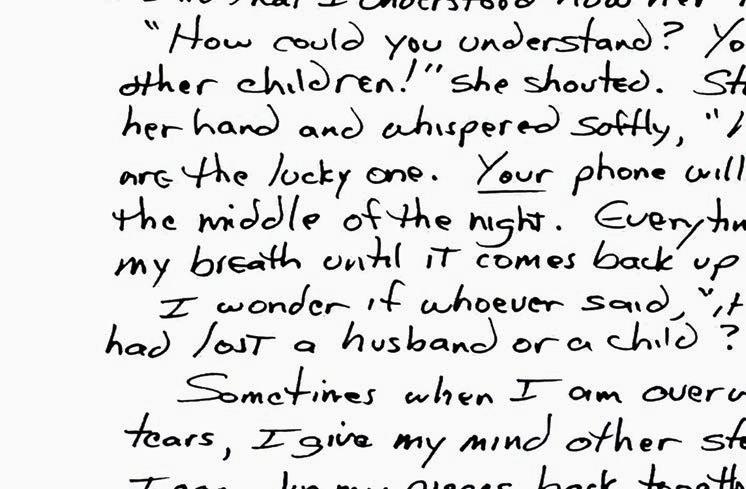 I understood how her
"How could you understand? Yo
other children!" she shouted. St
her hand and whispered softly, "
are the lucky one. Your phone will
the middle of the night. Everytim
my breath until it comes back up
I wonder if whoever said, "it
had lost a husband or a child?
Sometimes when I am overw
tears, I give my mind other ste
my pieces back togeth